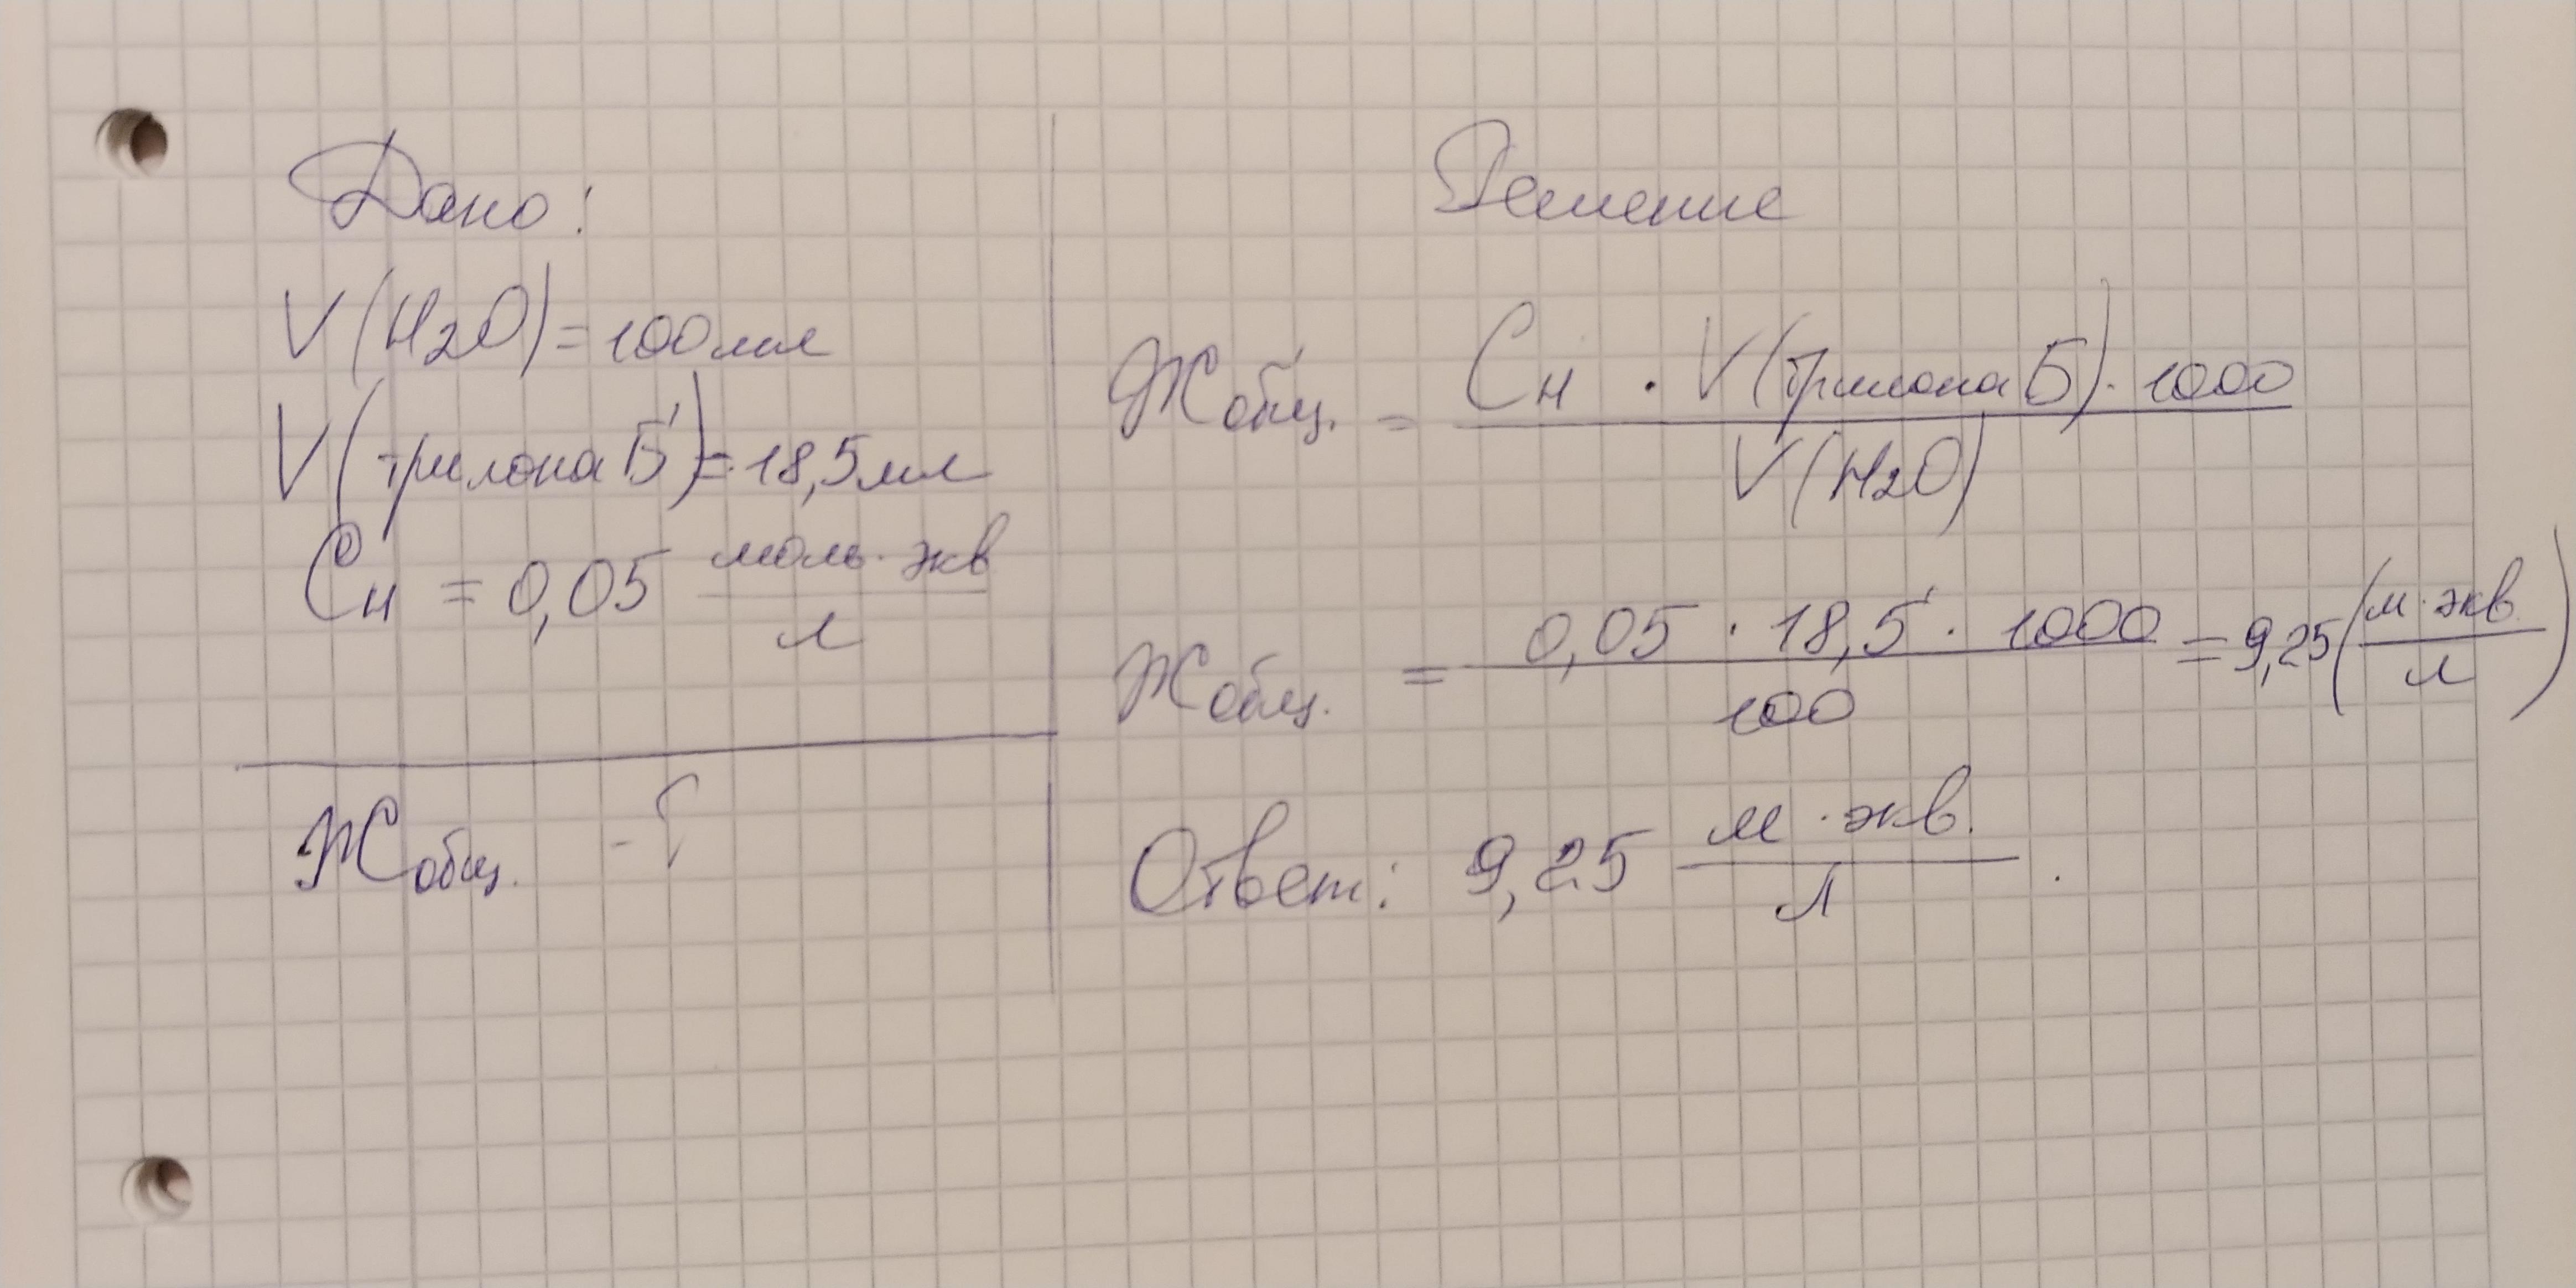 Дано:
V(H2O)=100мл
V(трилона Б)=18,5мл
Cн = 0,05 моль·экв/л
Жобщ. -?
Решение
Жобщ. = Cн · V(трилона Б) · 1000 / V(H2O)
Жобщ. = 0,05 · 18,5 · 1000 / 100 = 9,25 (м·экв/л)
Ответ: 9,25 м·экв./л.